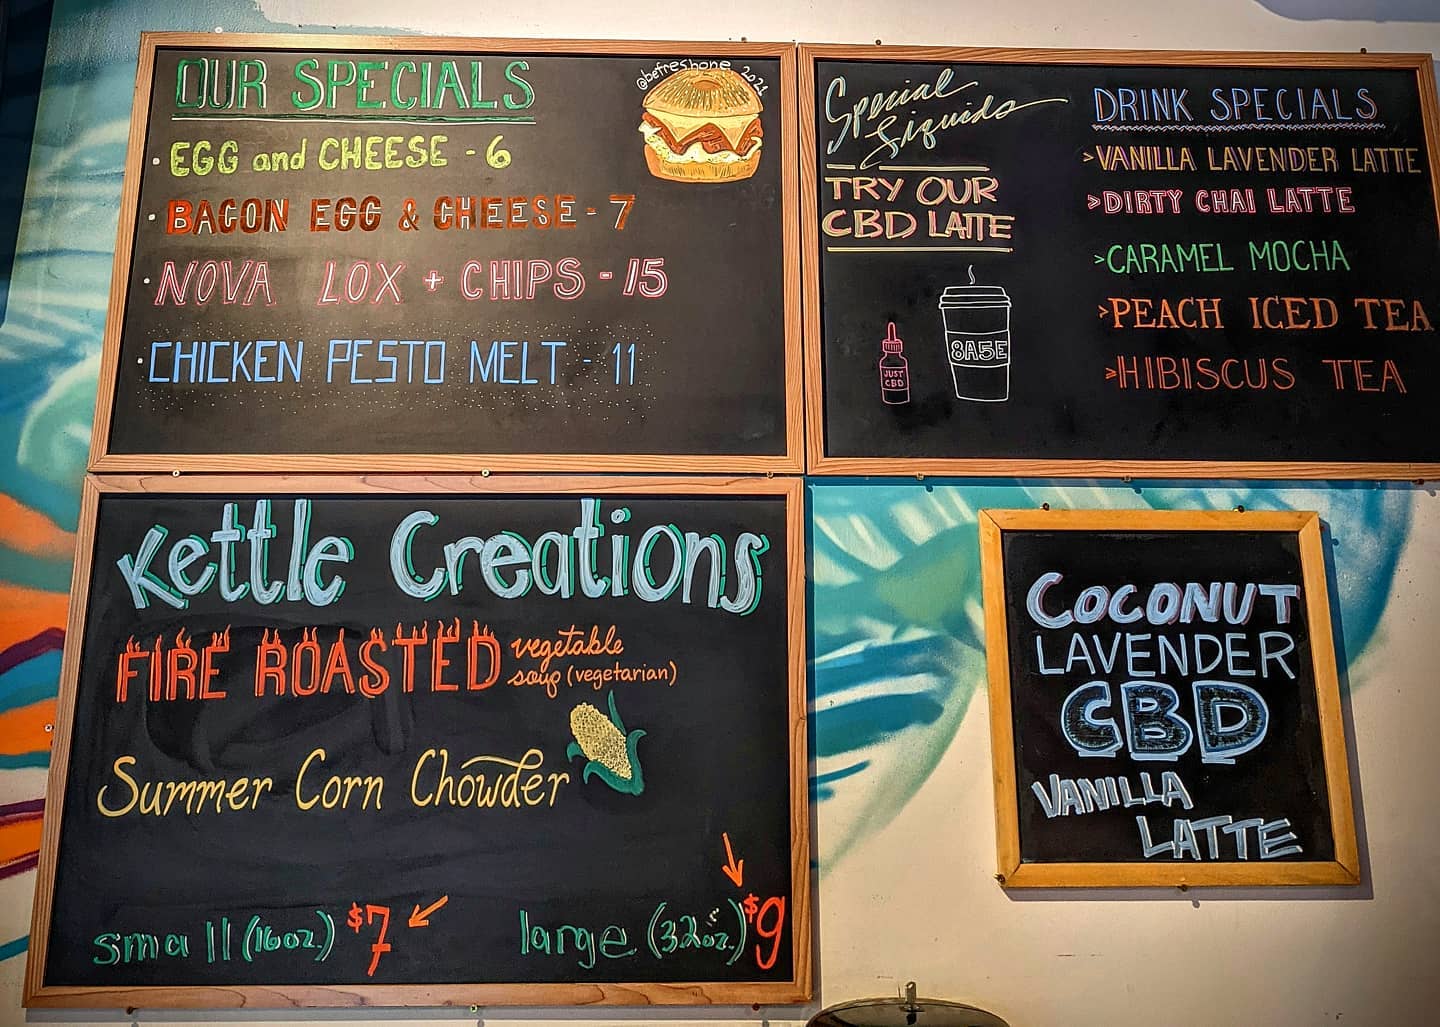 OUR SPECIALS
@befreshone 2021
• EGG and CHEESE - 6
• BACON EGG & CHEESE - 7
• NOVA LOX + CHIPS - 15
• CHICKEN PESTO MELT - 11
Special
Liquids
TRY OUR
CBD LATTE
JUST
CBD
8A5E
DRINK SPECIALS
>VANILLA LAVENDER LATTE
>DIRTY CHAI LATTE
>CARAMEL MOCHA
>PEACH ICED TEA
>HIBISCUS TEA
Kettle Creations
FIRE ROASTED vegetable
soup (vegetarian)
Summer Corn Chowder
small (16oz.) $7
large (32oz.) $9
COCONUT
LAVENDER
CBD
VANILLA
LATTE